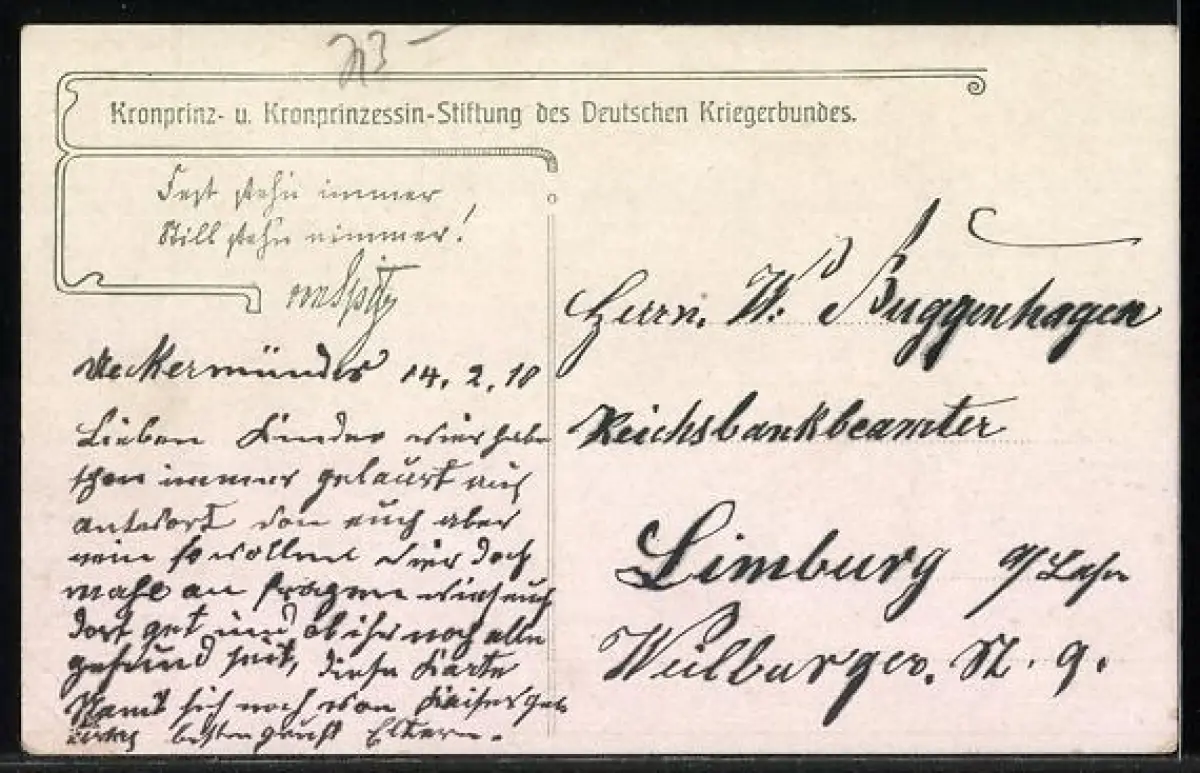 n3 –
Kronprinz- u. Kronprinzessin-Stiftung des Deutschen Kriegerbundes.
Fest stehn immer
Still stehn nimmer!
Ueckermünde 14. 2. 10
Lieben Kinder wier habe
schon immer gelaurt auf
antwort von euch aber
nein so wollen wier doch
mahl an fragen wie euch
dort get und ob ihr noch alle
gesund seit, diese Karte
stamt sich noch von Kaisers ge
besten gruß Eltern.
Herrn. W. Buggenhagen
Reichsbankbeamter
Limburg a/ Lahn
Weilburger. St. 9.